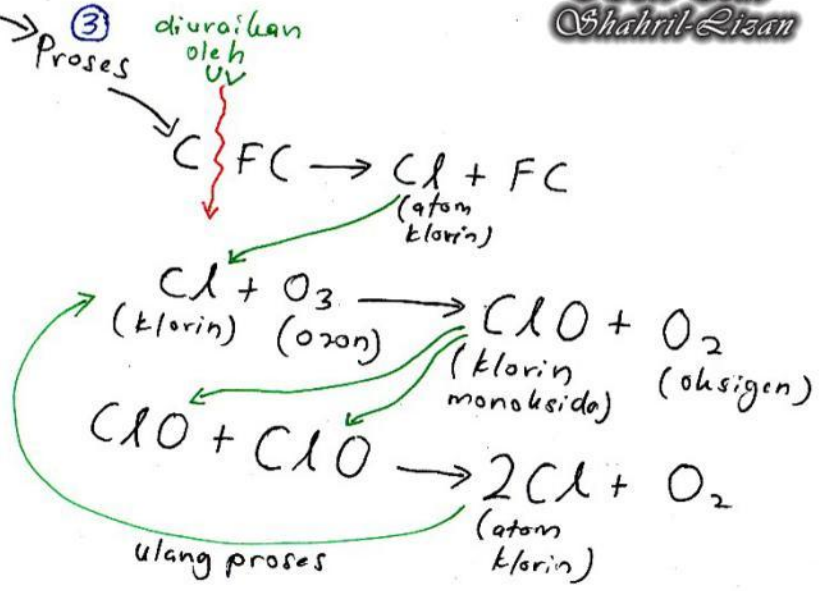 Shahril-Lizan
③
Proses
diuraikan
oleh
UV
C FC → Cl + FC
(atom
klorin)
Cl + O3 → ClO + O2
(klorin) (ozon) (klorin
monoksida) (oksigen)
ClO + ClO → 2Cl + O2
(atom
klorin)
ulang proses